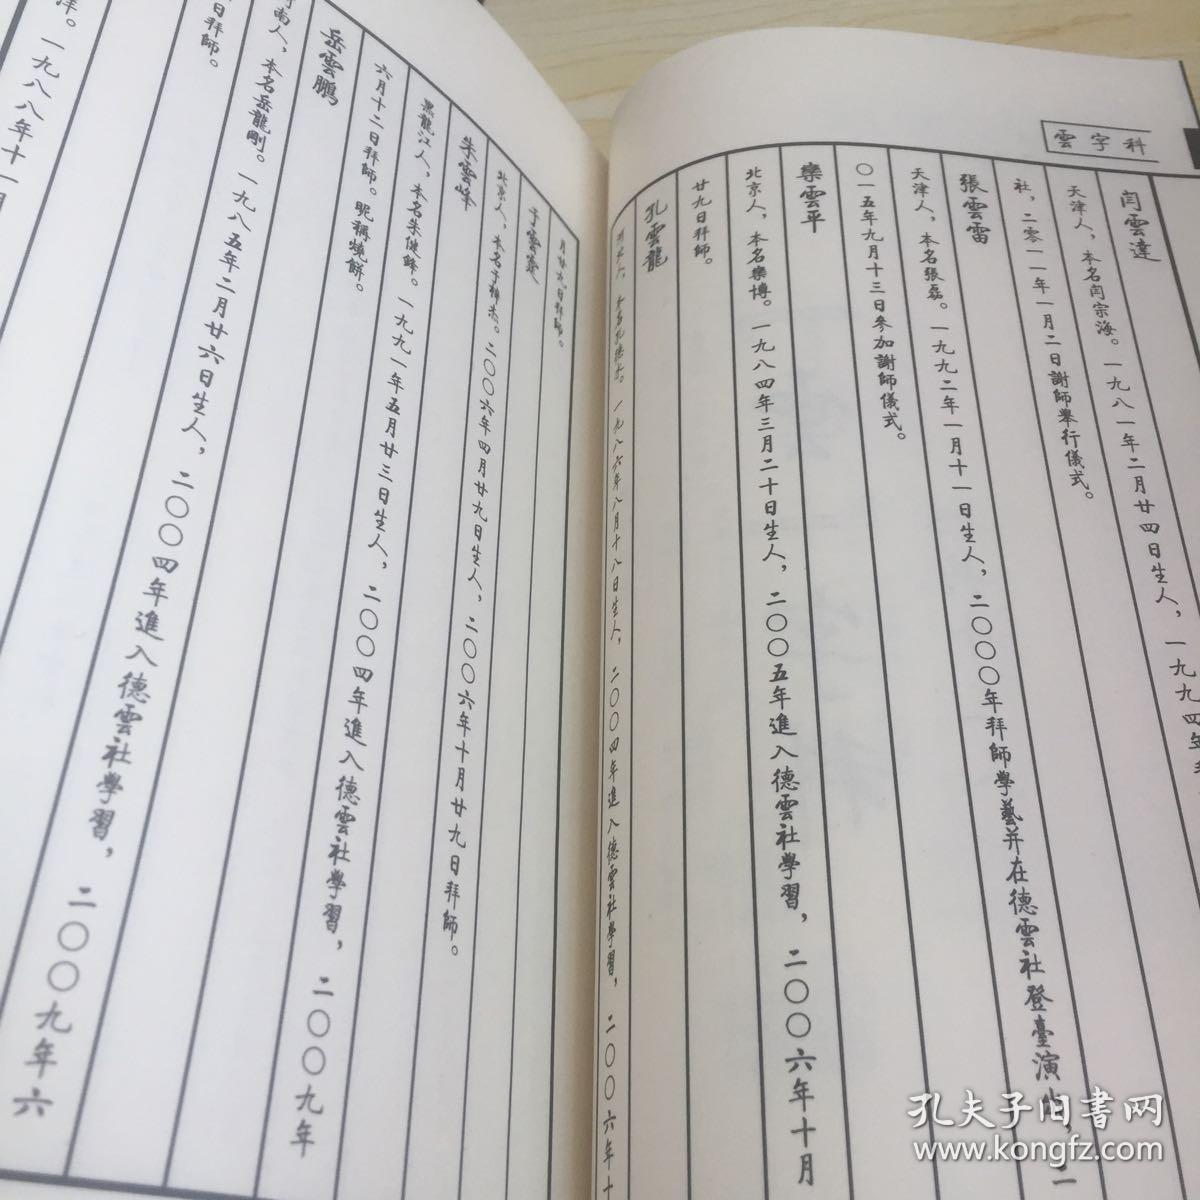 雲字科
閆雲達
天津人，本名閆宗海。一九八一年二月廿四日生人，一九九四年
社，二零一一年一月二日謝師舉行儀式。
張雲雷
天津人，本名張磊。一九九二年一月十一日生人，二〇〇〇年拜師學藝并在德雲社登臺演出，二
〇一五年九月十三日參加謝師儀式。
欒雲平
北京人，本名欒博。一九八四年三月二十日生人，二〇〇五年進入德雲社學習，二〇〇六年十月
廿九日拜師。
孔雲龍
本名孔德水。一九八六年八月十八日生人，二〇〇四年進入德雲社學習，二〇〇六年十
月廿九日拜師。
于雲霆
北京人，本名于神杰。二〇〇六年四月廿九日生人，二〇〇六年十月廿九日拜師。
朱雲峰
黑龍江人，本名朱健鋒。一九九一年五月廿三日生人，二〇〇四年進入德雲社學習，二〇〇九年
六月十二日拜師。昵稱燒餅。
岳雲鵬
河南人，本名岳龍剛。一九八五年二月廿六日生人，二〇〇四年進入德雲社學習，二〇〇九年六
日拜師。
洋。一九八八年十一月
孔夫子旧书网
www.kongfz.com